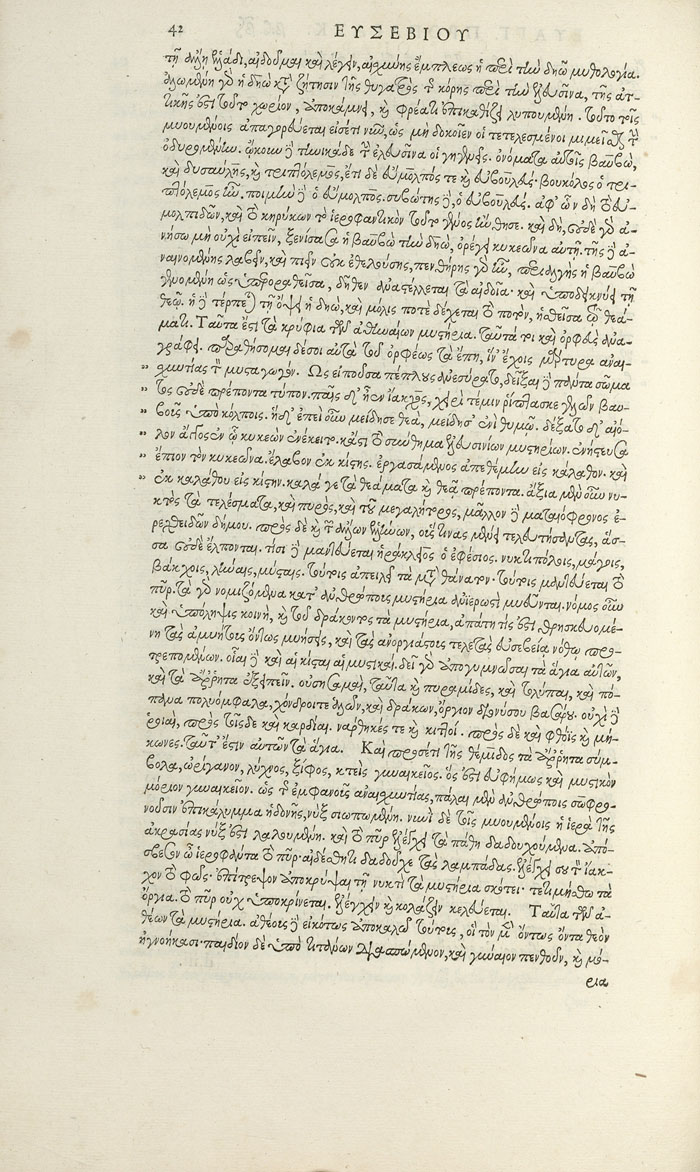 42 ΕΥΣΕΒΙΟΥ
τῇ ἄλλῃ ἑλλάδι, αἰδοῦμαι καὶ λέγειν, αἰσχύνης ἔμπλεως ἡ περὶ τὴν δηὼ μυθολογία.
ἀλωμένη γὰρ ἡ δηὼ κατὰ ζήτησιν τῆς θυγατρὸς τῆς κόρης περὶ τὴν ἐλευσῖνα, τῆς ἀτ-
τικῆς ἐστὶ τοῦτο χωρίον, ἀποκάμνει, καὶ φρέατι ἐπικαθίζει λυπουμένη. τοῦτο τοῖς
μυουμένοις ἀπαγορεύεται εἰσέτι νῦν, ὡς μὴ δοκοῖεν οἱ τετελεσμένοι μιμεῖσθαι τὴν
ὀδυρομένην. ᾤκουν δὲ τηνικάδε τὴν ἐλευσῖνα οἱ γηγενεῖς. ὀνόματα αὐτοῖς βαυβὼ,
καὶ δυσαύλης, καὶ τριπτόλεμος, ἔτι δὲ εὔμολπός τε καὶ εὐβουλεύς. βουκόλος ὁ τρι-
πτόλεμος ἦν. ποιμὴν δὲ ὁ εὔμολπος. συβώτης δὲ, ὁ εὐβουλεύς. ἀφ' ὧν δὴ τὸ εὐ-
μολπιδῶν, καὶ τὸ κηρύκων τὸ ἱεροφαντικὸν τοῦτο γένος ἤνθησε. καὶ δὴ, οὐδὲ γὰρ ἀ-
νήσω μὴ οὐχὶ εἰπεῖν, ξενίσασα ἡ βαυβὼ τὴν δηὼ, ὀρέγει κυκεῶνα αὐτῇ. τῆς δὲ ἀ-
ναινομένης λαβεῖν, καὶ πιεῖν οὐκ ἐθελούσης, πενθήρης γὰρ ἦν, περιαλγὴς ἡ βαυβὼ
γενομένη ὡς ὑπεροραθεῖσα, δῆθεν ἀναστέλλεται τὰ αἰδοῖα. καὶ ὑποδεικνύει τῇ
θεῷ. ἡ δὲ τέρπεται τῇ ὄψει ἡ δηὼ, καὶ μόλις ποτὲ δέχεται τὸ ποτὸν, ἡσθεῖσα τῷ θεά-
ματι. Ταῦτα ἔστι τὰ κρύφια τῶν ἀθηναίων μυστήρια. ταῦτά τοι καὶ ὀρφεὺς ἀνα-
γράφει. παραθήσομαι δέ σοι αὐτὰ τοῦ ὀρφέως τὰ ἔπη, ἵν' ἔχοις μάρτυρα ἀναι-
„ σχυντίας τὸν μυσταγωγόν. Ὣς εἰποῦσα πέπλους ἀνεσύρατο, δεῖξαι δὲ πάντα σώμα
„ τος οὐδὲ πρέποντα τύπον. παῖς δ' ἦεν ἴακχος, χειρί τέ μιν ῥίπτασκε γελῶν βαυ-
„ βοῦς ὑπὸ κόλποις. ἡ δ' ἐπεὶ οὖν μείδησε θεά, μείδησ' ἐνὶ θυμῷ. δέξατο δ' αἰό-
„ λον ἄγγος ἐν ᾧ κυκεὼν ἐνέκειτο. κἄστι τὸ σύνθημα ἐλευσινίων μυστηρίων. ἐνήστευσα
„ ἔπιον τὸν κυκεῶνα. ἔλαβον ἐκ κίστης. ἐργασάμενος ἀπεθέμην εἰς κάλαθον. καὶ
„ ἐκ καλάθου εἰς κίστην. καλά γε τὰ θεάματα καὶ θεᾷ πρέποντα. ἄξια μὲν οὖν νυ-
κτὸς τὰ τελέσματα, καὶ πυρὸς, καὶ τοῦ μεγαλήτορος, μᾶλλον δὲ ματαιόφρονος ἐ-
ρεχθειδῶν δήμου. πρὸς δὲ καὶ τῶν ἄλλων ἑλλήνων, οὕς τινας μένει τελευτήσαντας, ἅσ-
σα οὐδὲ ἔλπονται. τίσι δὲ μαντεύεται ἡράκλειτος ὁ ἐφέσιος. νυκτιπόλοις, μάγοις,
βάκχοις, λήναις, μύσταις. τούτοις ἀπειλεῖ τὰ μετὰ θάνατον. τούτοις μαντεύεται τὸ
πῦρ. τὰ γὰρ νομιζόμενα κατ' ἀνθρώποις μυστήρια ἀνϊερωστὶ μυοῦνται. νόμος οὖν
καὶ ὑπόληψις κοινὴ, καὶ τοῦ δράκοντος τὰ μυστήρια, ἀπάτη τίς ἐστι θρησκευομέ-
νη τὰς ἀμυήτους ὄντως μυήσεις, καὶ τὰς ἀνοργιάστους τελετὰς εὐσεβείᾳ νόθῳ προσ-
τρεπομένων. οἷαι δὲ καὶ αἱ κίσται αἱ μυστικαί. δεῖ γὰρ ἀπογυμνῶσαι τὰ ἅγια αὐτῶν,
καὶ τὰ ἄρρητα ἐξειπεῖν. οὐ σησαμαῖ, ταῦτα καὶ πυραμίδες, καὶ τολύπαι, καὶ πό-
πανα πολυόμφαλα, χόνδροι τε ἁλῶν, καὶ δράκων, ὄργιον διονύσου βασσάρου. οὐχὶ δὲ
ῥοιαὶ, πρὸς τοῖσδε καὶ καρδίαι. νάρθηκές τε καὶ κιττοί. πρὸς δὲ καὶ φθοῖς καὶ μή-
κωνες. ταῦτ' ἔστιν αὐτῶν τὰ ἅγια. Καὶ προσέτι τῆς θέμιδος τὰ ἄρρητα σύμ-
βολα, ὀρίγανον, λύχνος, ξίφος, κτεὶς γυναικεῖος. ὅς ἐστι εὐφήμως καὶ μυστικὸν
μόριον γυναικεῖον. ὢ τῆς ἐμφανοῦς ἀναισχυντίας, πάλαι μὲν ἀνθρώποις σωφρο-
νοῦσιν ἐπικάλυμμα ἡδονῆς, νὺξ σιωπωμένη. νυνὶ δὲ τοῖς μυουμένοις ἡ ἱερὰ τῆς
ἀκρασίας νύξ ἐστι λαλουμένη. καὶ τὸ πῦρ ἐλέγχει τὰ πάθη δᾳδουχούμενα. ἀπό-
σβεσον ὦ ἱεροφάντα τὸ πῦρ. αἰδέσθητι δᾳδοῦχε τὰς λαμπάδας. ἐλέγχει σου τὸν ἴακ-
χον τὸ φῶς. ἐπίτρεψον ἀποκρύψαι τῇ νυκτὶ τὰ μυστήρια σκότει. τετιμήσθω τὰ
ὄργια. τὸ πῦρ οὐχ ὑποκρίνεται. ἐλέγχειν καὶ κολάζειν κελεύεται. Ταῦτα τῶν ἀ-
θέων τὰ μυστήρια. ἀθέους δὲ εἰκότως ἀποκαλῶ τούτους, οἳ τὸν μὲν ὄντως ὄντα θεὸν
ἠγνοήκασι. παιδίον δὲ ὑπὸ τιτάνων διασπώμενον, καὶ γύναιον πενθοῦν, καὶ μό-
ρια